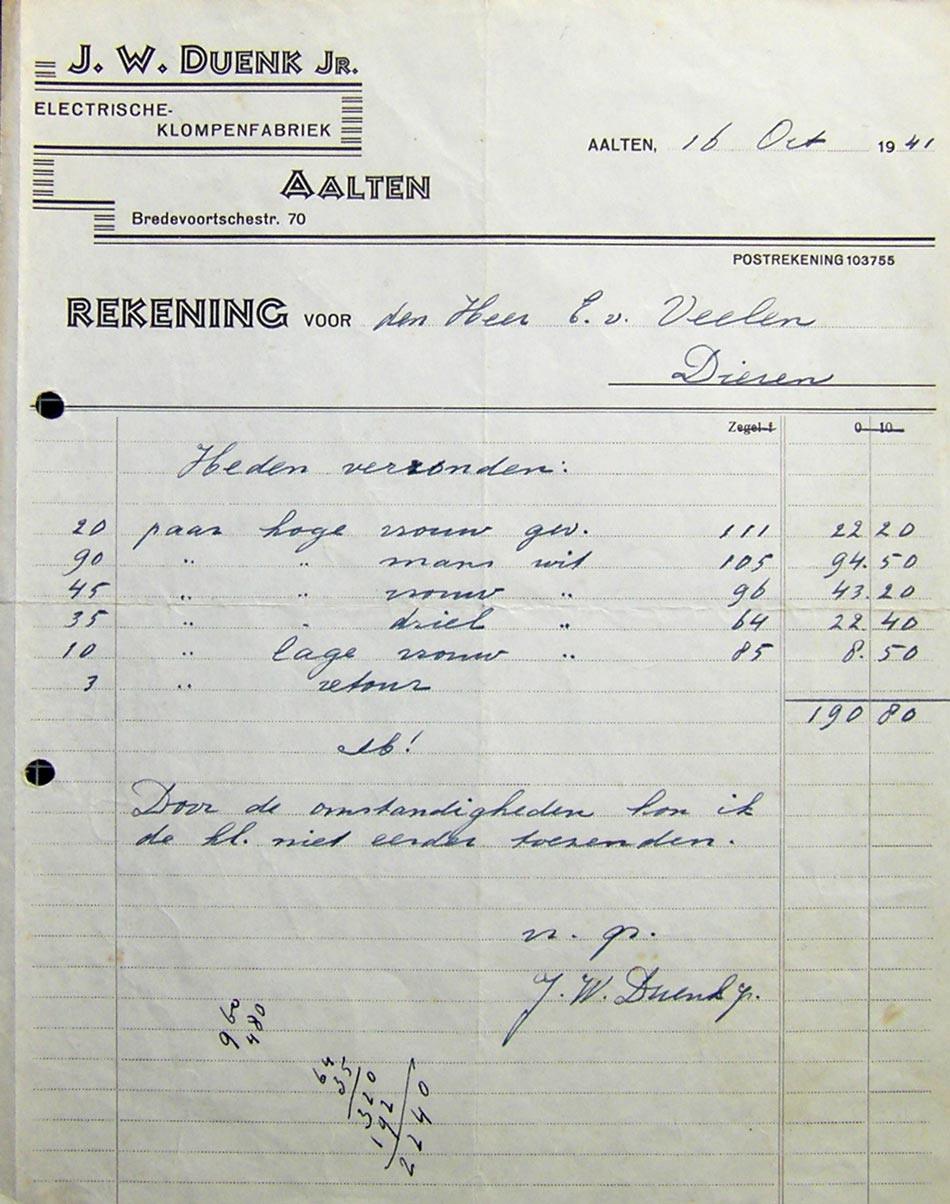 J. W. DUENK JR.
ELECTRISCHE-
KLOMPENFABRIEK
AALTEN
Bredevoortschestr. 70
AALTEN, 16 Oct 1941
POSTREKENING 103755
REKENING VOOR den Heer E. v. Veelen
Dieren
Zegel f 0 10
Heden verzonden:
20 paar hoge vrouw gev. 111 22 20
90 " " mans wit 105 94. 50
45 " " vrouw " 96 43. 20
35 " " driel " 64 22 40
10 " lage vrouw " 85 8. 50
3 " retour
190 80
Nb!
Door de omstandigheden kon ik
de kl. niet eerder toezenden.
J. W. Duenk Jr.
960
480
64
35
320
192
2240